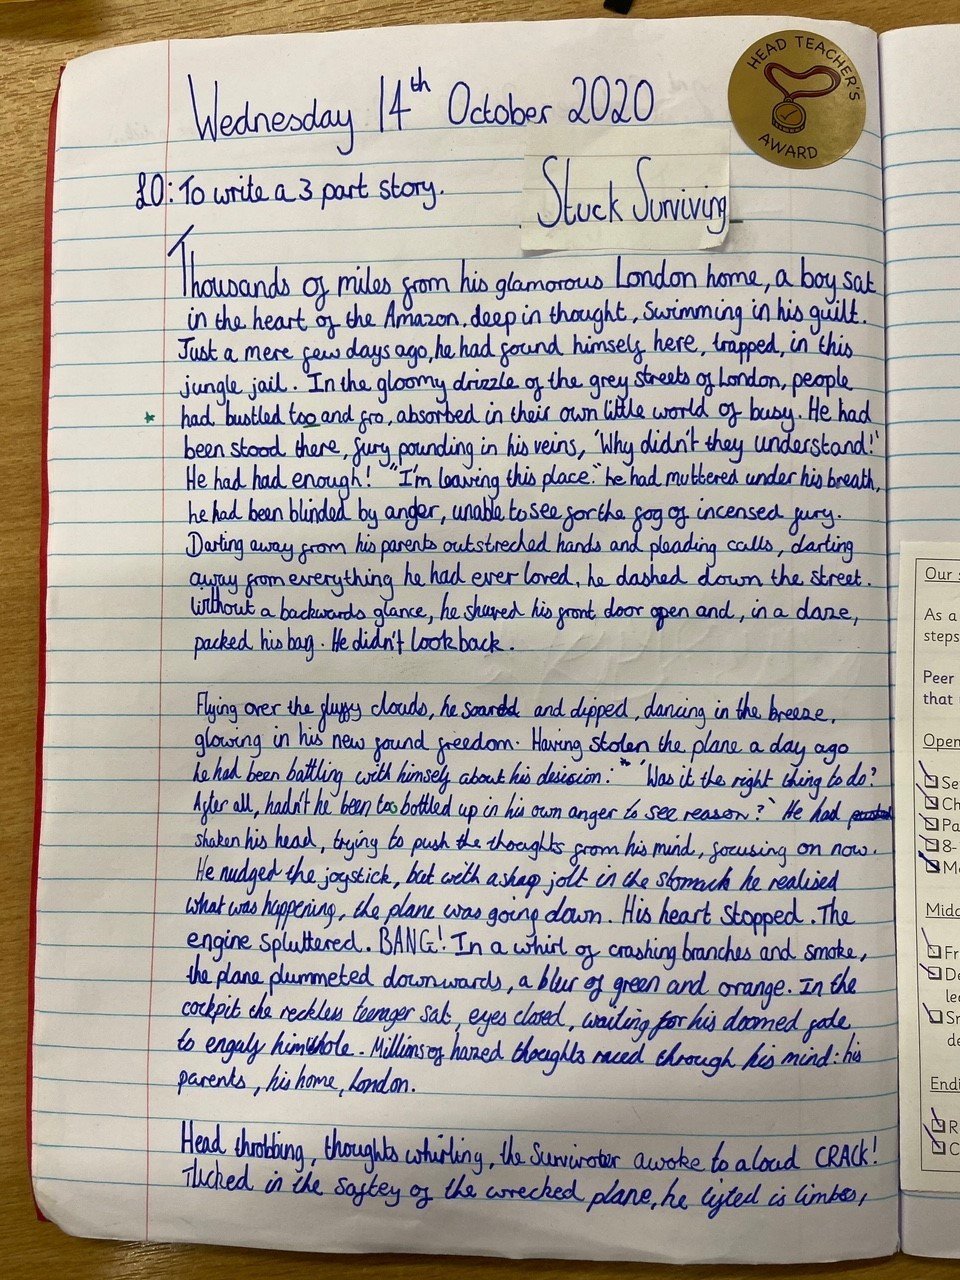 HEAD TEACHER'S
AWARD
Wednesday 14th October 2020
LO: To write a 3 part story.
Stuck Surviving
Thousands of miles from his glamorous London home, a boy sat
in the heart of the Amazon, deep in thought, swimming in his guilt.
Just a mere few days ago, he had found himself here, trapped, in this
jungle jail. In the gloomy drizzle of the grey streets of London, people
had bustled too and fro, absorbed in their own little world of busy. He had
been stood there, fury pounding in his veins, 'Why didn't they understand!'
He had had enough! "I'm leaving this place." he had muttered under his breath,
he had been blinded by anger, unable to see for the fog of incensed fury.
Darting away from his parents outstreched hands and pleading calls, darting
away from everything he had ever loved, he dashed down the street.
Without a backwards glance, he shuved his front door open and, in a daze,
packed his bag. He didn't look back.
Flying over the fluffy clouds, he soared and dipped, dancing in the breeze,
glowing in his new found freedom. Having stolen the plane a day ago
he had been battling with himself about his desicion: 'Was it the right thing to do?
After all, hadn't he been too bottled up in his own anger to see reason?' He had
shaken his head, trying to push the thoughts from his mind, focusing on now.
He nudged the joystick, but with a shap jolt in the stomach he realised
what was happening, the plane was going down. His heart stopped. The
engine spluttered. BANG! In a whirl of crashing branches and smoke,
the plane plummeted downwards, a blur of green and orange. In the
cockpit the reckless teenager sat, eyes closed, waiting for his doomed fate
to engulf him whole. Millions of hazed thoughts raced through his mind: his
parents, his home, London.
Head throbbing, thoughts whirling, the survivor awoke to a loud CRACK!
Tucked in the saftey of the wrecked plane, he lifted is limbes,
Our
As a
steps
Peer
that
Open
Se
Ch
Pa
8-
M
Midd
Fr
De
le
Sn
de
Endi
R
C